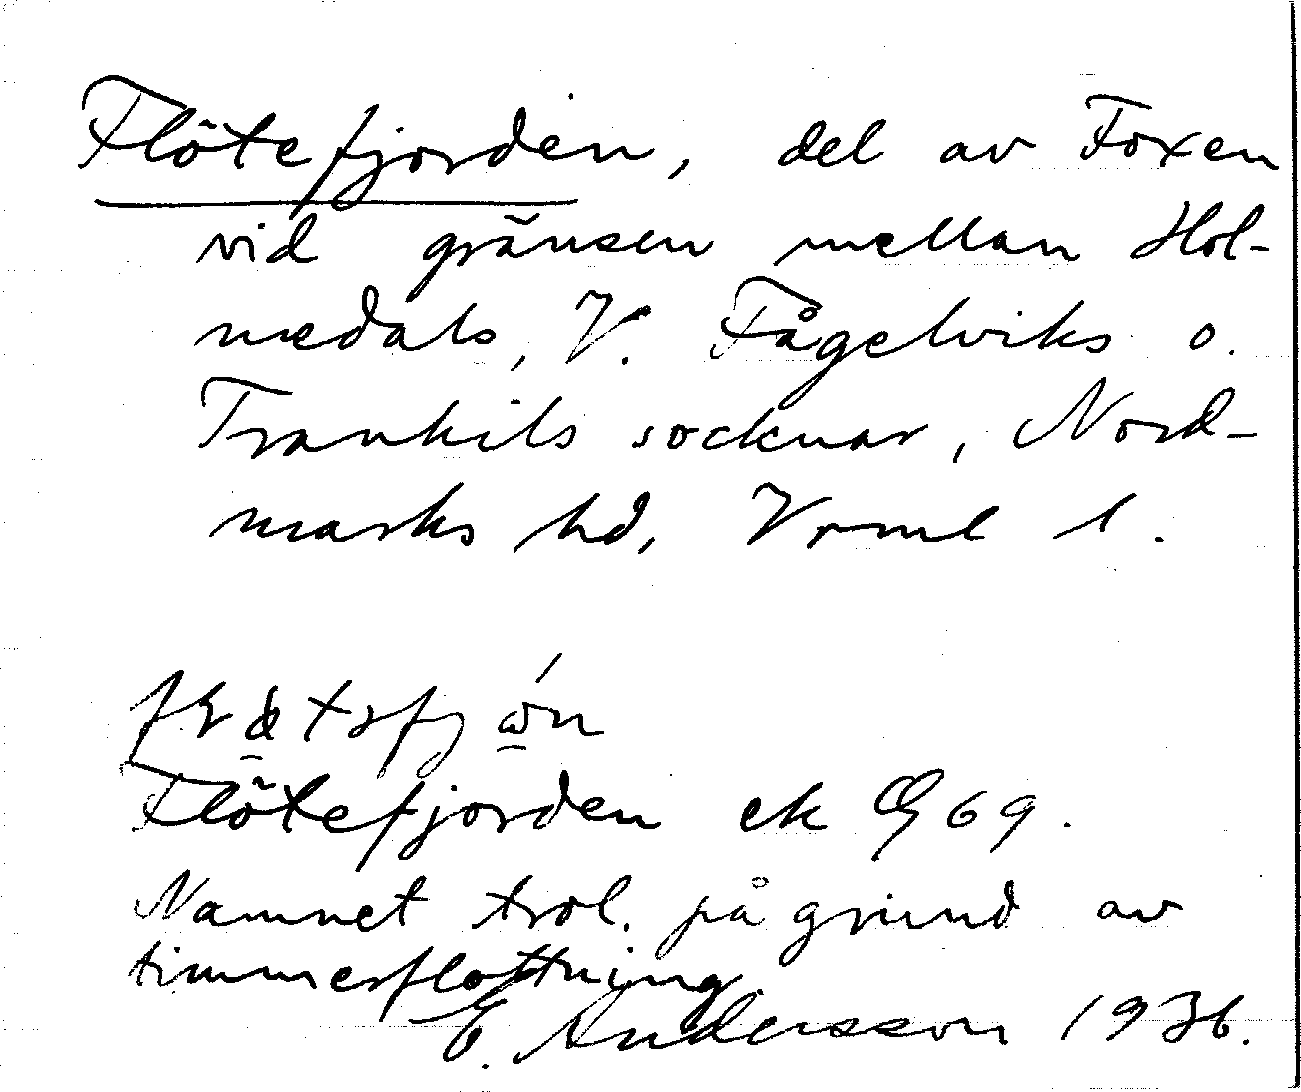 Flötefjorden, del av Foxen
vid gränsen mellan Hol-
medals, V. Fågelviks o.
Trankils socknar, Nord-
marks hd, Vrml l.
Flötefjorden ek 69.
Namnet trol. på grund av
timmerflottning
E. Andersson 1936.